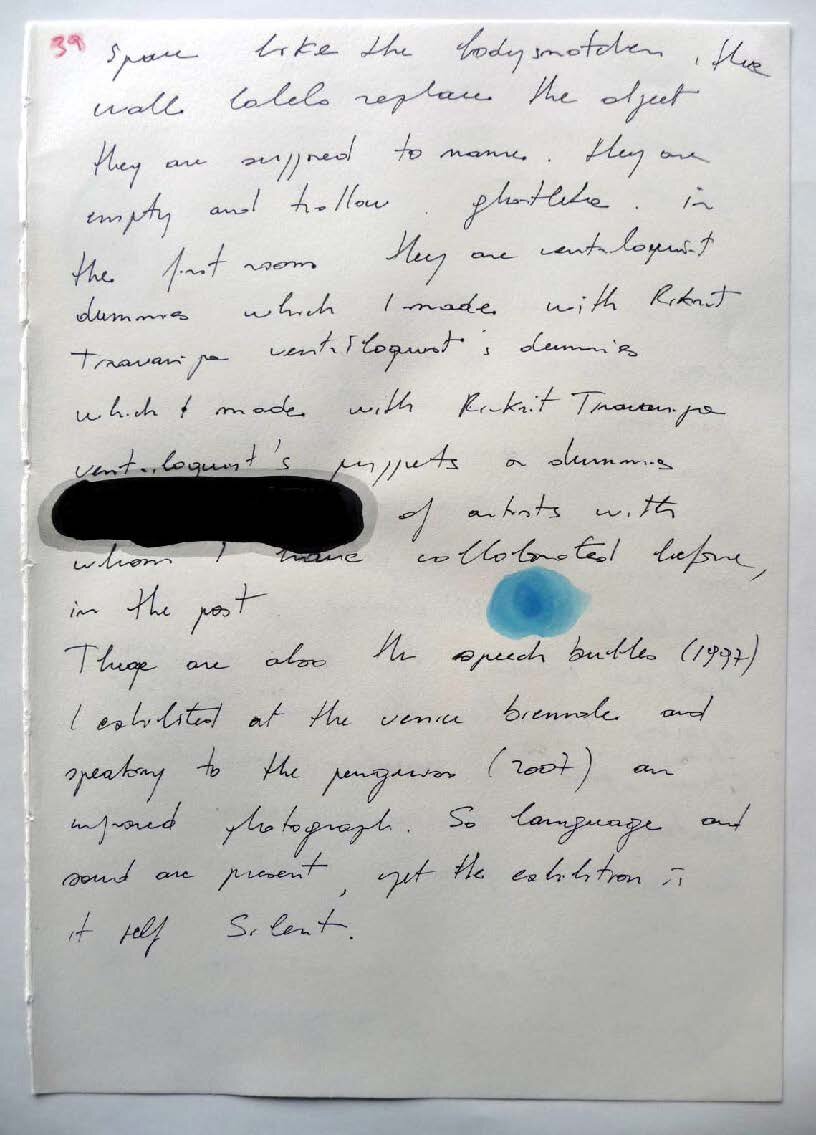 39
Space like the bodysnatchers, the
wall labels replace the object
they are supposed to name. they are
empty and hollow. ghostlike. in
the first room they are ventriloquist
dummies which I made with Rirkrit
Tiravanija ventriloquist's dummies
which I made with Rirkrit Tiravanija
ventriloquist's puppets or dummies
of artists with
whom I have collaborated before,
in the past
There are also the speech bubbles (1997)
I exhibited at the venice biennale and
speaking to the penguins (2007) an
infrared photograph. So language and
sound are present, yet the exhibition is
it self Silent.